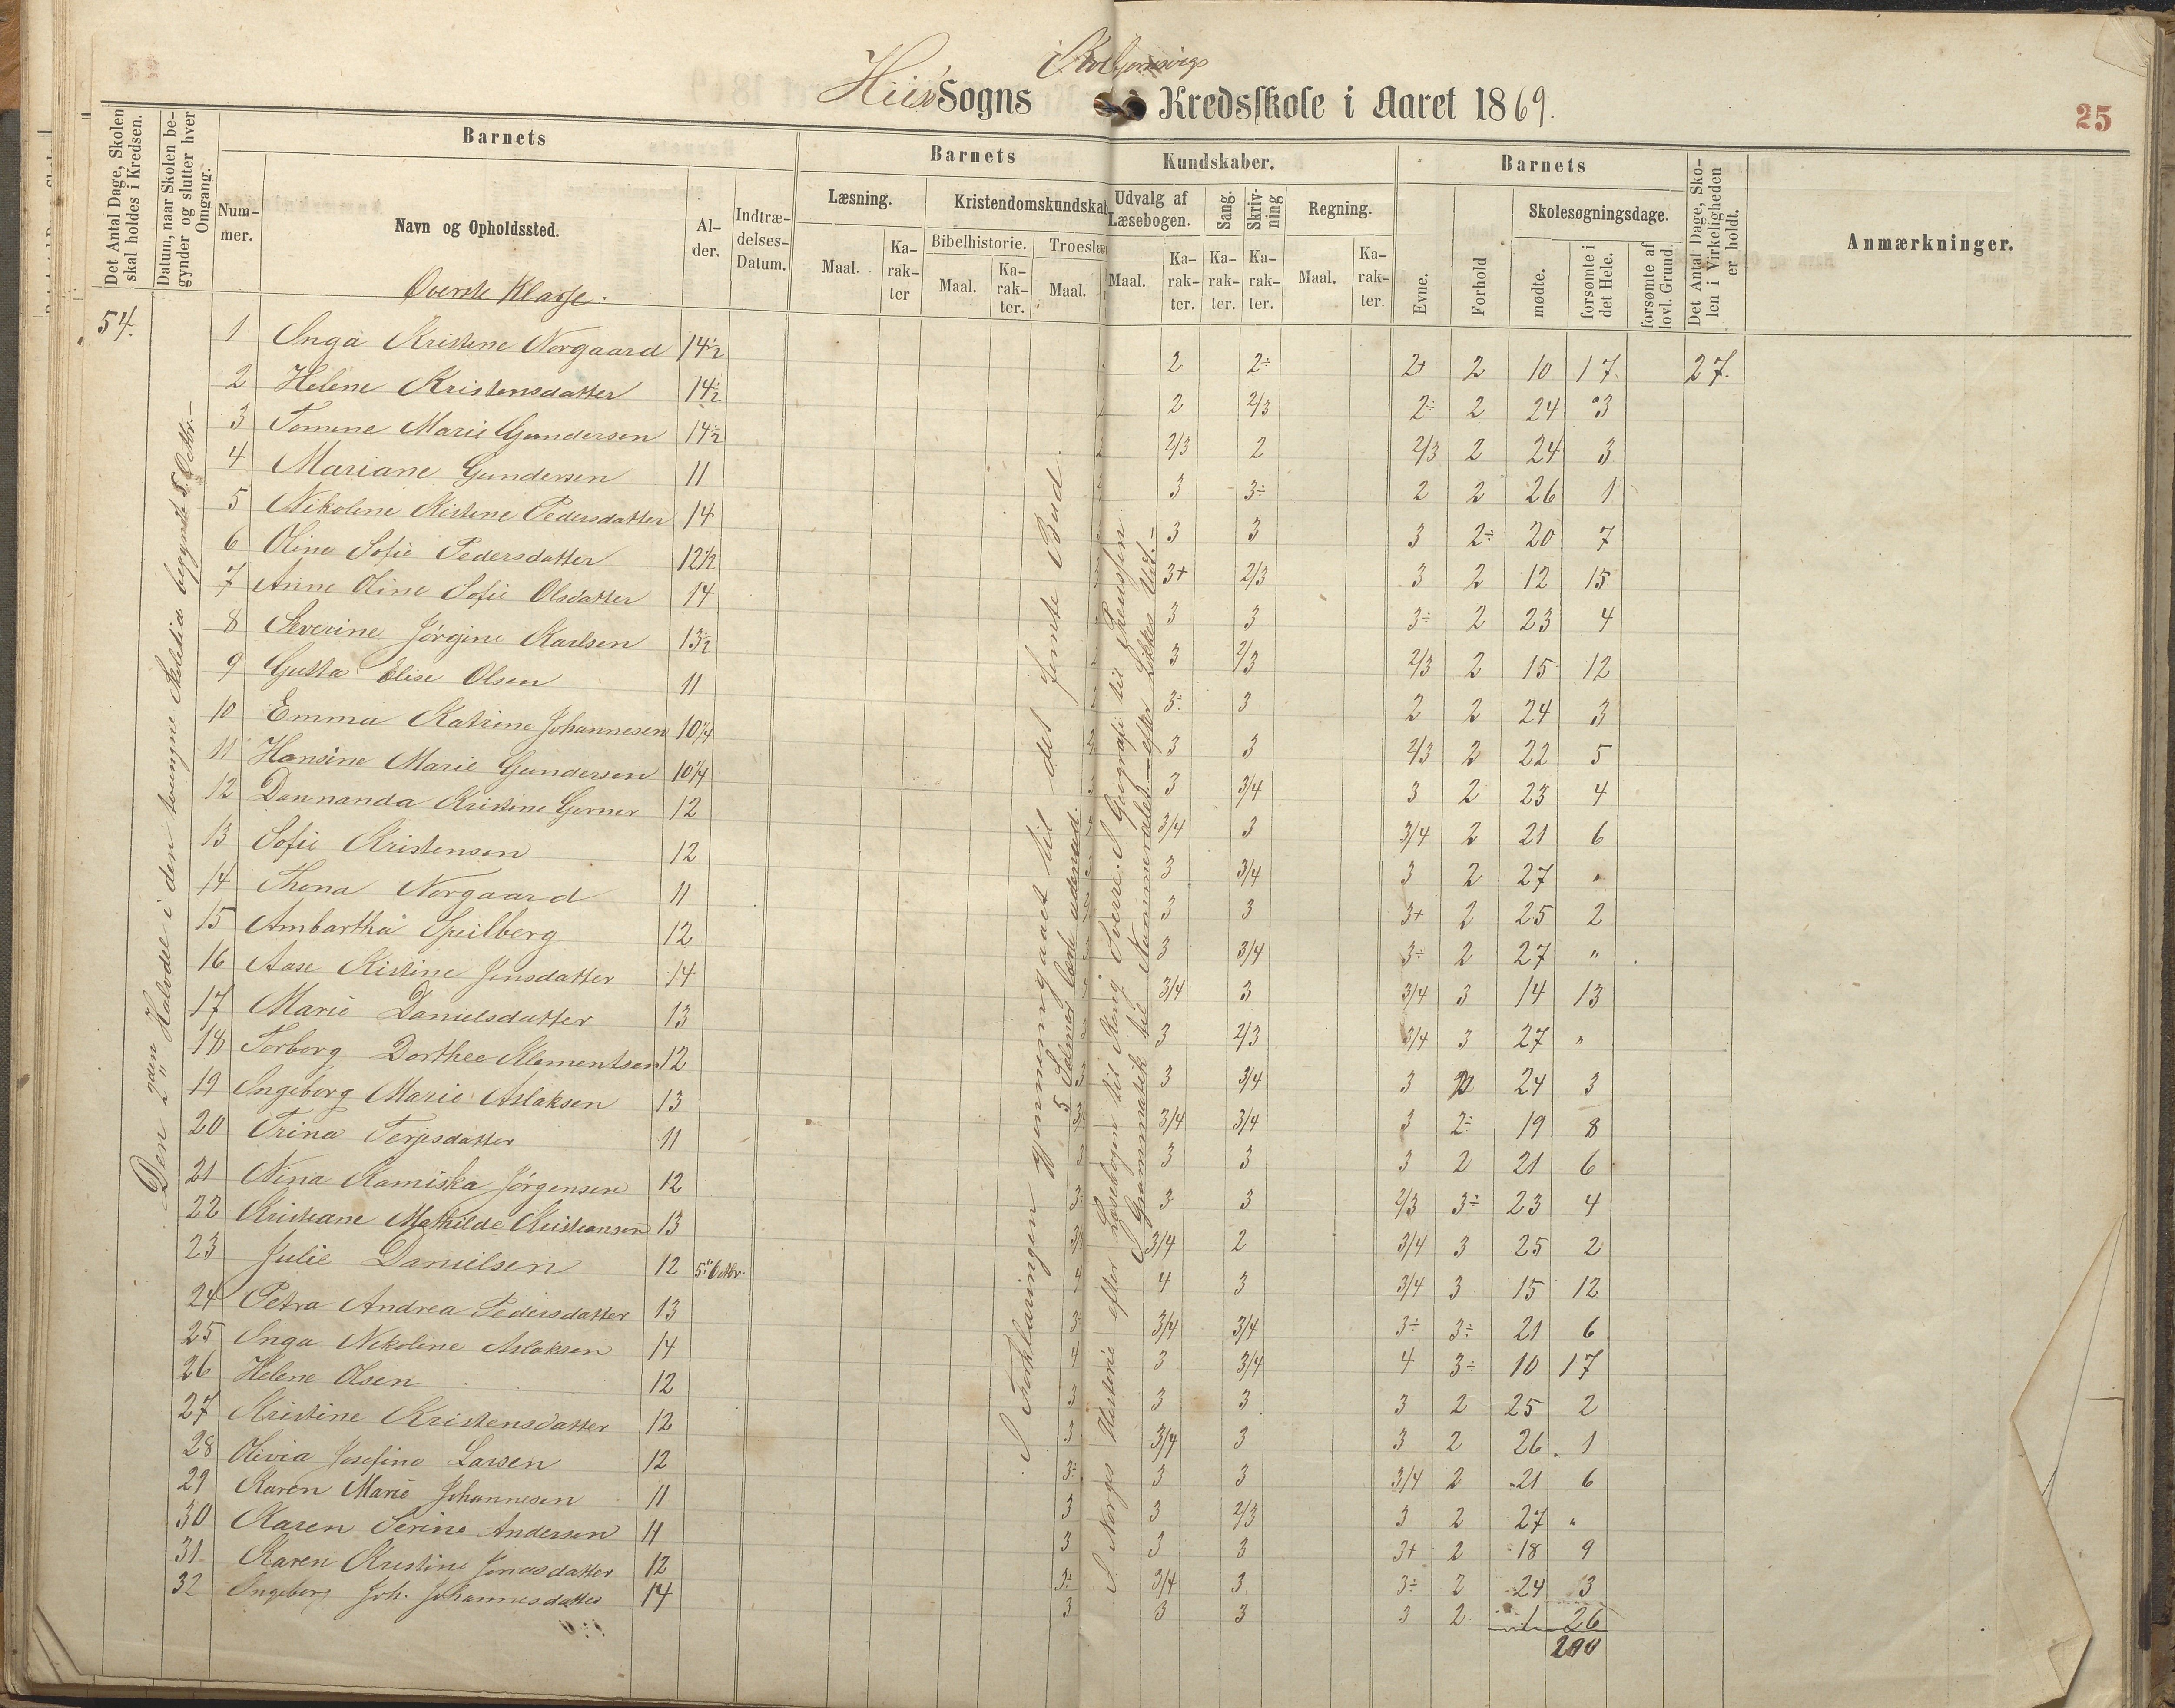 i Kolbjørnsvigs
Hisø Sogns Kredsskole i Aaret 1869.
25
Det Antal Dage, Skolen skal holdes i Kredsen.
Datum, naar Skolen begynder og slutter hver Omgang.
Barnets
Barnets
Kundskaber.
Barnets
Det Antal Dage, Skolen i Virkeligheden er holdt.
Anmærkninger.
Nummer.
Navn og Opholdssted.
Alder.
Indtrædelses-Datum.
Læsning.
Kristendomskundskab
Udvalg af Læsebogen.
Sang.
Skrivning
Regning.
Evne.
Forhold
Skolesøgningsdage.
Maal.
Karakter
Bibelhistorie.
Troeslæ
Maal.
Karakter.
Maal.
Maal.
Karakter.
Karakter.
Karakter.
Maal.
Karakter.
mødte.
forsømte i det Hele.
forsømte af lovl. Grund.
Øverste Klasse.
54.
1 Inga Kristine Norgaard 14½ 2 2÷ 2+ 2 10 17 27.
2 Helene Kristensdatter 14½ 2 2/3 2÷ 2 24 3
3 Tomine Marie Gundersen 14½ 2/3 2 2/3 2 24 3
4 Mariane Gundersen 11 3 3÷ 2 2 26 1
5 Nikoline Kistine Pedersdatter 14 3 3 3 2÷ 20 7
6 Oline Sofie Pedersdatter 12½ 3+ 2/3 3 2 12 15
7 Anne Oline Sofie Olsdatter 14 3 3 3÷ 2 23 4
8 Severine Jørgine Karlsen 13½ 3 2/3 2/3 2 15 12
9 Gusta Elise Olsen 11 3÷ 3 2 2 24 3
10 Emma Katrine Johannesen 10¼ 3 3 2/3 2 22 5
11 Hansine Marie Gundersen 10¼ 3 3/4 3 2 23 4
12 Dannanda Kristine Gerner 12 3/4 3 3/4 2 21 6
13 Sofie Kristensen 12 3 3/4 3 2 27 "
14 Thona Norgaard 11 3 3 3+ 2 25 2
15 Ambartha Speilberg 12 3 3/4 3÷ 2 27 "
16 Aase Kistine Jensdatter 14 3/4 3 3/4 3 14 13
17 Marie Danielsdatter 13 3 2/3 3/4 3 27 "
18 Torborg Dorthee Klementsen 12 3 3/4 3 2 24 3
19 Ingeborg Marie Aslaksen 13 3/4 3/4 3 2÷ 19 8
20 Trina Terjesdatter 11 3 3 3 2 21 6
21 Nina Kamiska Jørgensen 12 3÷ 3 3 2/3 3÷ 23 4
22 Kristiane Mathilde Kristiansen 13 3/4 3/4 2 3/4 3 25 2
23 Julie Danielsen 12 5te Oktbr. 4 4 3 3/4 3 15 12
24 Petra Andrea Pedersdatter 13 3÷ 3/4 3/4 3÷ 3÷ 21 6
25 Inga Nikoline Aslaksen 14 4 3 3/4 4 3÷ 10 17
26 Helene Olsen 12 3 3 3 3 2 25 2
27 Kristine Kristensdatter 12 3 3/4 3 3 2 26 1
28 Olivia Josefine Larsen 12 3÷ 3 3 3/4 2 21 6
29 Karen Marie Johannesen 11 3 3 2/3 3 2 27 "
30 Karen Serine Andersen 11 3 3 3 3+ 2 18 9
31 Karen Kristine Jonasdatter 12 3÷ 3/4 3 3÷ 2 24 3
32 Ingeborg Joh. Johannesdatter 14 3 3 3 3 2 1 26
200
Den 2den Halvdel i den tvungne Skoletid begyndte 5. Oktbr.
I Forklaringen gjennemgaaet til det femte Bud.
5 Salmer lærte udenad.
I Norges Historie efter Læsebogen til Kong Sverre. I Geografi til Preussen.
I Grammatik til Nummeralet efter Løkkes Udt.